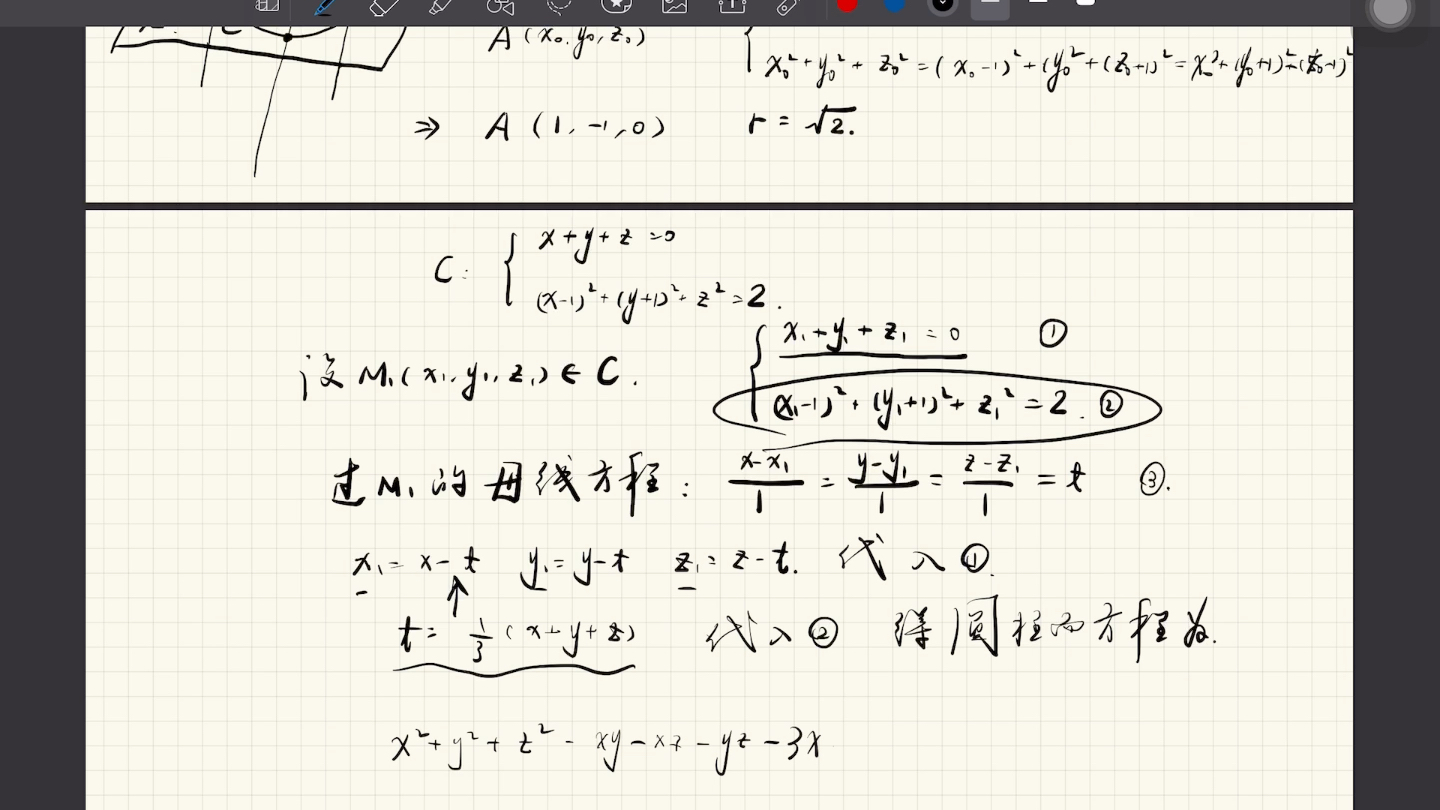 A (x₀, y₀, z₀)
x₀² + y₀² + z₀² = (x₀-1)² + (y₀² + (z₀+1)² = x₀² + (y₀+1)² + (z₀+1)²
⇒ A (1, -1, 0) r = √2.
C: { x + y + z = 0
(x-1)² + (y+1)² + z² = 2.
{ x₁ + y₁ + z₁ = 0 ①
设 M₁(x₁, y₁, z₁) ∈ C.
(x₁-1)² + (y₁+1)² + z₁² = 2. ②
过 M₁ 的母线方程: (x-x₁)/1 = (y-y₁)/1 = (z-z₁)/1 = t ③.
x₁ = x-t y₁ = y-t z₁ = z-t. 代入①.
t = 1/3 (x+y+z) 代入② 得圆柱面方程为.
x² + y² + z² - xy - xz - yz - 3x